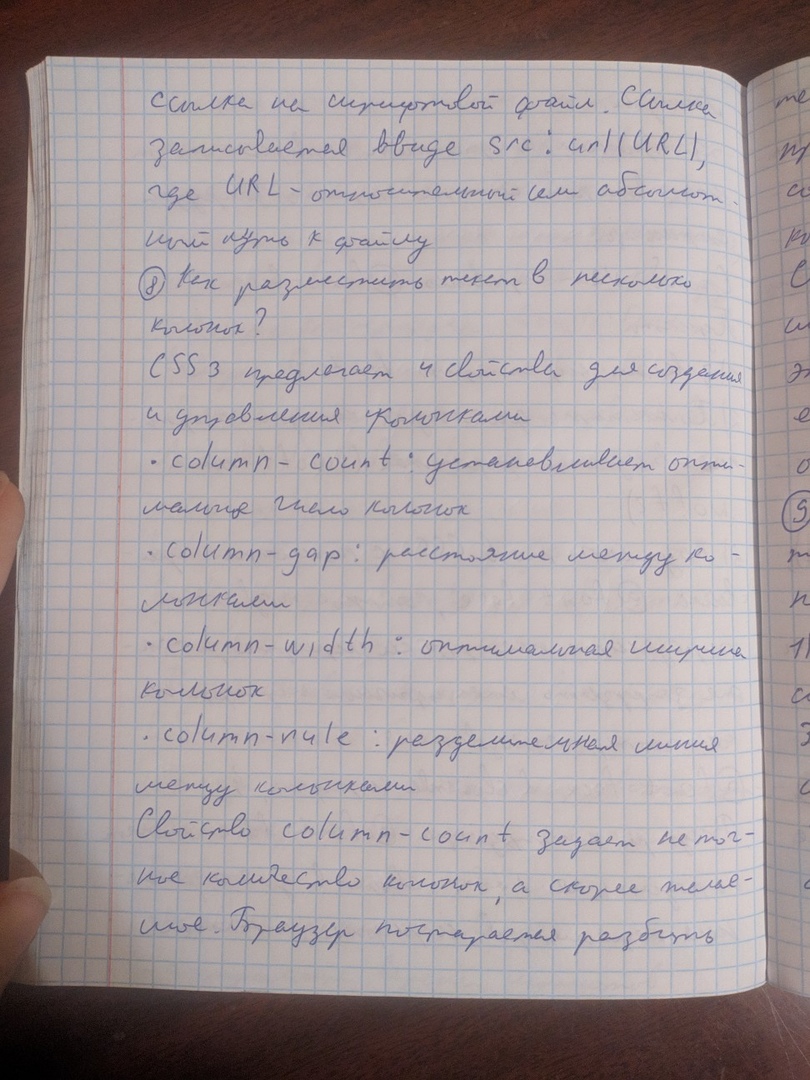 ссылка на шрифтовой файл. Ссылка
записывается ввиде src: url(URL),
где URL - относительный или абсолют-
ный путь к файлу
⑧ Как разместить текст в несколько
колонок?
CSS3 предлагает 4 свойства для создания
и управления колонками
· column-count: устанавливает опти-
мальное число колонок
· column-gap: расстояние между ко-
лонками
· column-width: оптимальная ширина
колонок
· column-rule: разделительная линия
между колонками
Свойство column-count задает не точ-
ное количество колонок, а скорее желае-
мое. Браузер постарается разбить